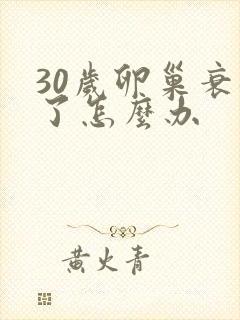 30歲卵巢衰
了怎麼办
黄火青